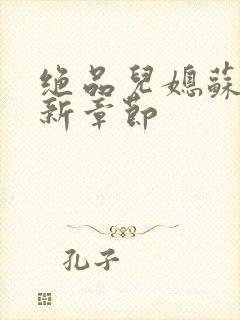 绝品兒媳蘇
新章節
孔子